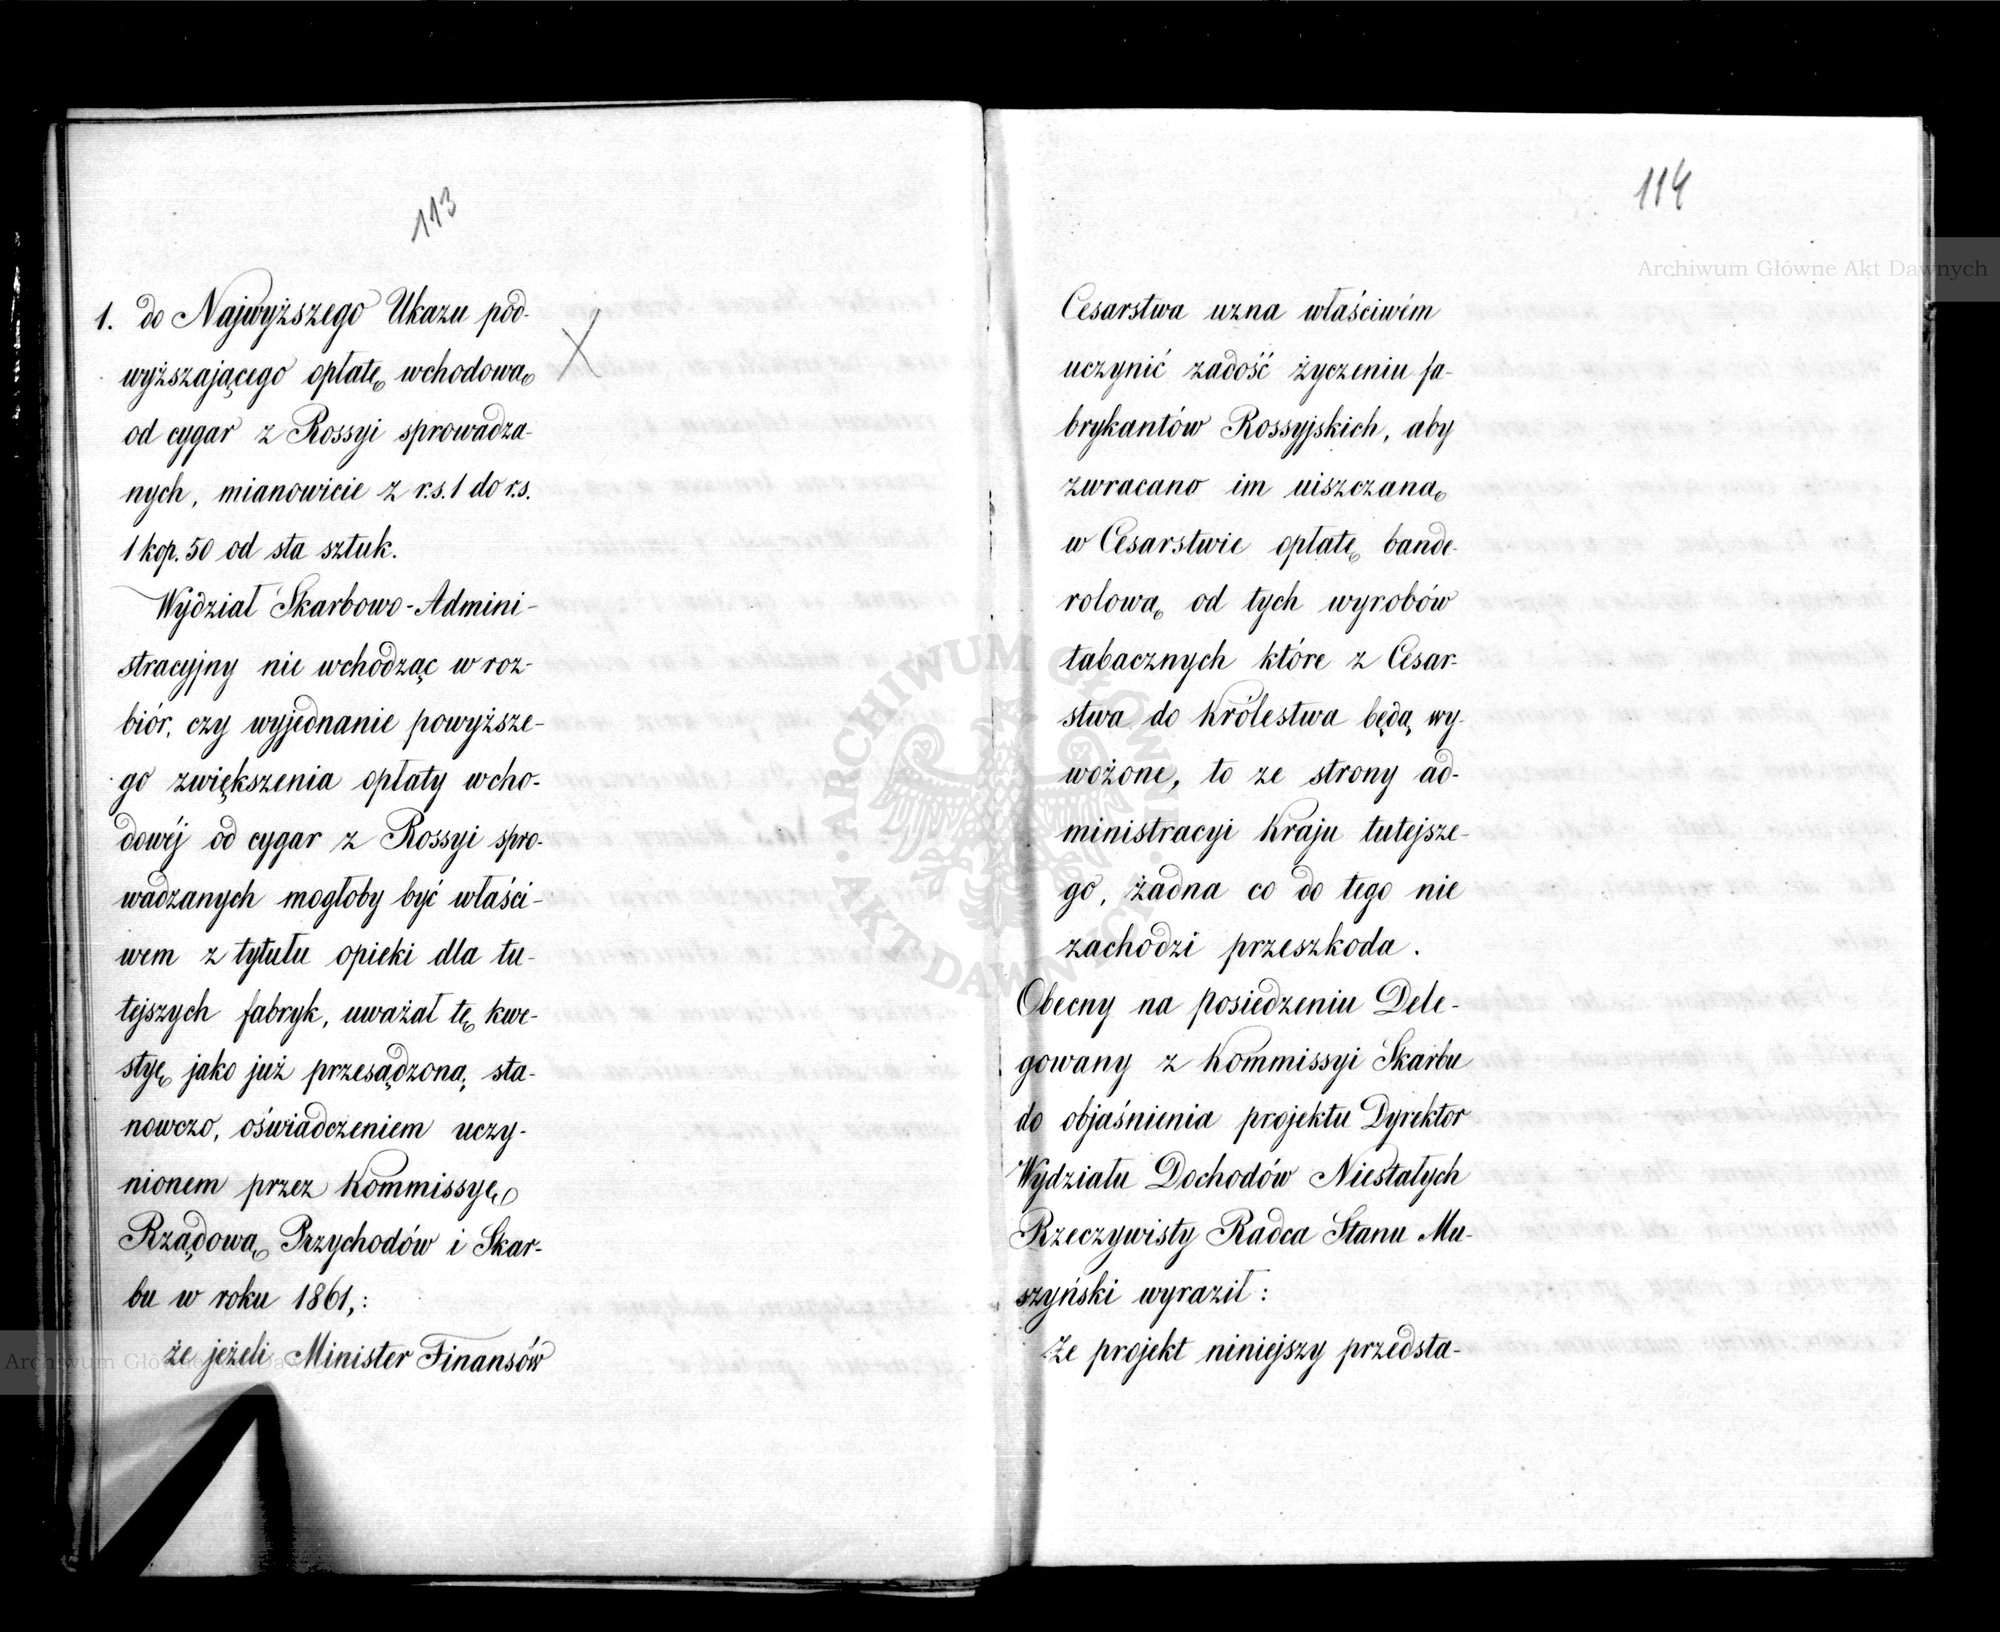 113
1. do Najwyższego Ukazu pod-
wyższającego opłatę wchodową
od cygar z Rossyi sprowadza-
nych, mianowicie z r.s. 1 do r.s.
1 kop. 50 od sta sztuk.
Wydział Skarbowo-Admini-
stracyjny nie wchodząc w roz-
biór, czy wyjednanie powyższe-
go zwiększenia opłaty wcho-
dowéj od cygar z Rossyi spro-
wadzanych mogłoby być właści-
wem z tytułu opieki dla tu-
tejszych fabryk, uważał tę kwe-
styę jako już przesądzoną, sta-
nowczo, oświadczeniem uczy-
nionem przez Kommissyę
Rządową Przychodów i Skar-
bu w roku 1861,:
że jeżeli Minister Finansów
114
Cesarstwa uzna właściwém
uczynić zadość życzeniu fa-
brykantów Rossyjskich, aby
zwracano im uiszczaną
w Cesarstwie opłatę bande-
rolową od tych wyrobów
tabacznych które z Cesar-
stwa do Królestwa będą wy-
wożone, to ze strony ad-
ministracyi Kraju tutejsze-
go, żadna co do tego nie
zachodzi przeszkoda.
Obecny na posiedzeniu Dele-
gowany z Kommissyi Skarbu
do objaśnienia projektu Dyrektor
Wydziału Dochodów Niestałych
Rzeczywisty Radca Stanu Mu-
szyński wyraził:
Że projekt niniejszy przedsta-
Archiwum Główne Akt Dawnych
ARCHIWUM GŁÓWNE
AKT DAWNYCH